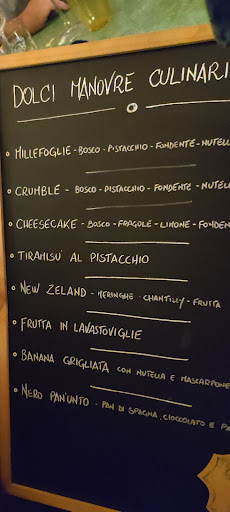 DOLCI MANOVRE CULINARI
MILLEFOGLIE - BOSCO - PISTACCHIO - FONDENTE - NUTELL
CRUMBLE - BOSCO - PISTACCHIO - FONDENTE - NUTELL
CHEESECAKE - BOSCO - FRAGOLE - LIMONE - FONDEN
TIRAMISU' AL PISTACCHIO
NEW ZELAND - MERINGHE - CHANTILLY - FRUTTA
FRUTTA IN LAVASTOVIGLIE
BANANA GRIGLIATA CON NUTELLA E MASCARPONE
NERO PAN'UNTO - PAN DI SPAGNA, CIOCCOLATO E